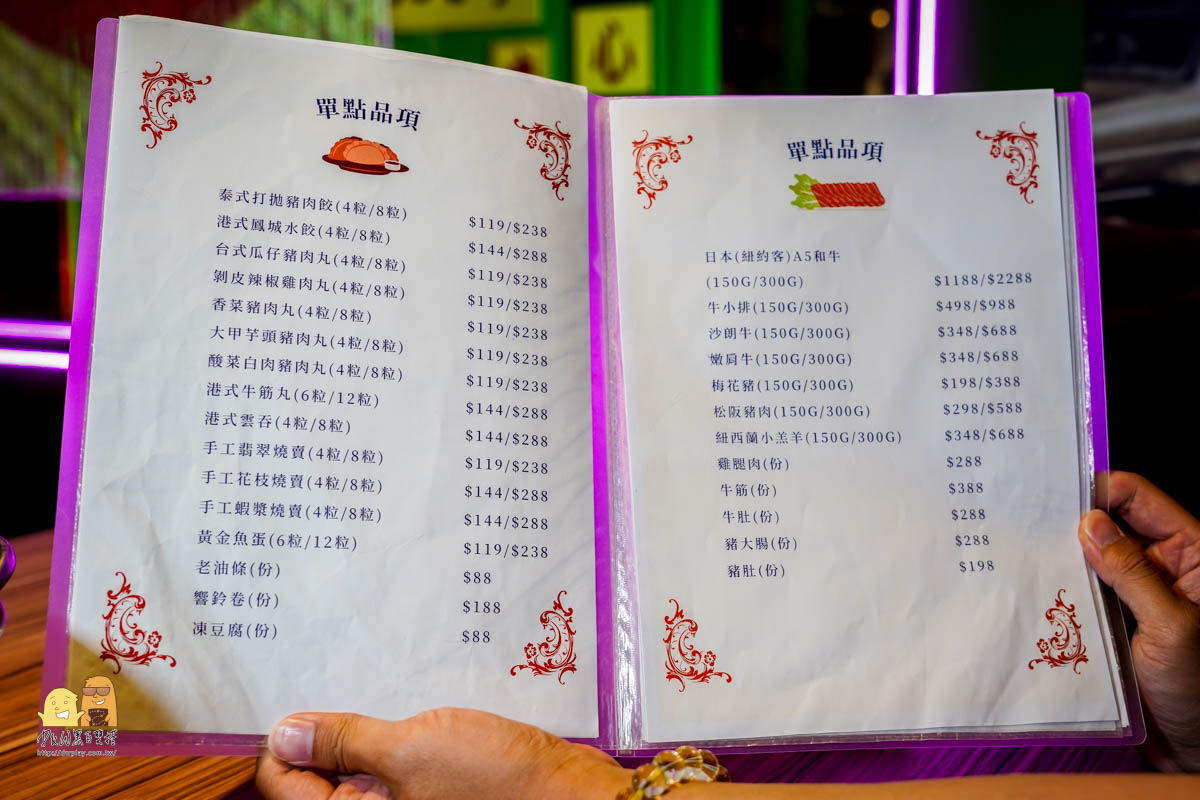 單點品項
泰式打拋豬肉餃(4粒/8粒) $119/$238
港式鳳城水餃(4粒/8粒) $144/$288
台式瓜仔豬肉丸(4粒/8粒) $119/$238
剝皮辣椒雞肉丸(4粒/8粒) $119/$238
香菜豬肉丸(4粒/8粒) $119/$238
大甲芋頭豬肉丸(4粒/8粒) $119/$238
酸菜白肉豬肉丸(4粒/8粒) $119/$238
港式牛筋丸(6粒/12粒) $144/$288
港式雲吞(4粒/8粒) $144/$288
手工翡翠燒賣(4粒/8粒) $119/$238
手工花枝燒賣(4粒/8粒) $144/$288
手工蝦漿燒賣(4粒/8粒) $144/$288
黃金魚蛋(6粒/12粒) $119/$238
老油條(份) $88
響鈴卷(份) $188
凍豆腐(份) $88
單點品項
日本(紐約客)A5和牛
(150G/300G) $1188/$2288
牛小排(150G/300G) $498/$988
沙朗牛(150G/300G) $348/$688
嫩肩牛(150G/300G) $348/$688
梅花豬(150G/300G) $198/$388
松阪豬肉(150G/300G) $298/$588
紐西蘭小羔羊(150G/300G) $348/$688
雞腿肉(份) $288
牛筋(份) $388
牛肚(份) $288
豬大腸(份) $288
豬肚(份) $198
心
http://dwplay.com.tw/